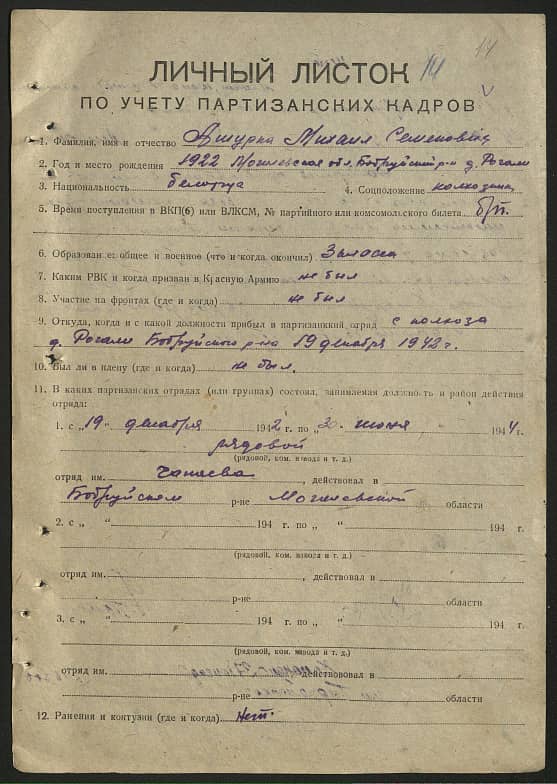 14 14
ЛИЧНЫЙ ЛИСТОК
ПО УЧЕТУ ПАРТИЗАНСКИХ КАДРОВ
1. Фамилия, имя и отчество Ашурка Михаил Семенович
2. Год и место рождения 1922 Могилевская обл. Бобруйский р-н д. Рогали
3. Национальность белорус 4. Соцположение колхозник
5. Время поступления в ВКП(б) или ВЛКСМ, № партийного или комсомольского билета б/п.
6. Образование общее и военное (что и когда окончил) 3 класса
7. Каким РВК и когда призван в Красную Армию не был
8. Участие на фронтах (где и когда) не был
9. Откуда, когда и с какой должности прибыл в партизанский отряд с колхоза
д. Рогали Бобруйского р-на 19 декабря 1942 г.
10. Был ли в плену (где и когда) не был.
11. В каких партизанских отрядах (или группах) состоял, занимаемая должность и район действия
отряда:
1. с „19“ декабря 1942 г. по „30“ июня 1944 г.
рядовой
(рядовой, ком. взвода и т. д.)
отряд им. Чапаева, действовал в
Бобруйском р-не Могилевской области
2. с „ “ 194 г. по „ “ 194 г.
(рядовой, ком. взвода и т. д.)
отряд им. , действовал в
р-не области
3. с „ “ 194 г. по „ “ 194 г.
(рядовой, ком. взвода и т. д.)
отряд им. действовал в
р-не области
12. Ранения и контузии (где и когда) Нет.